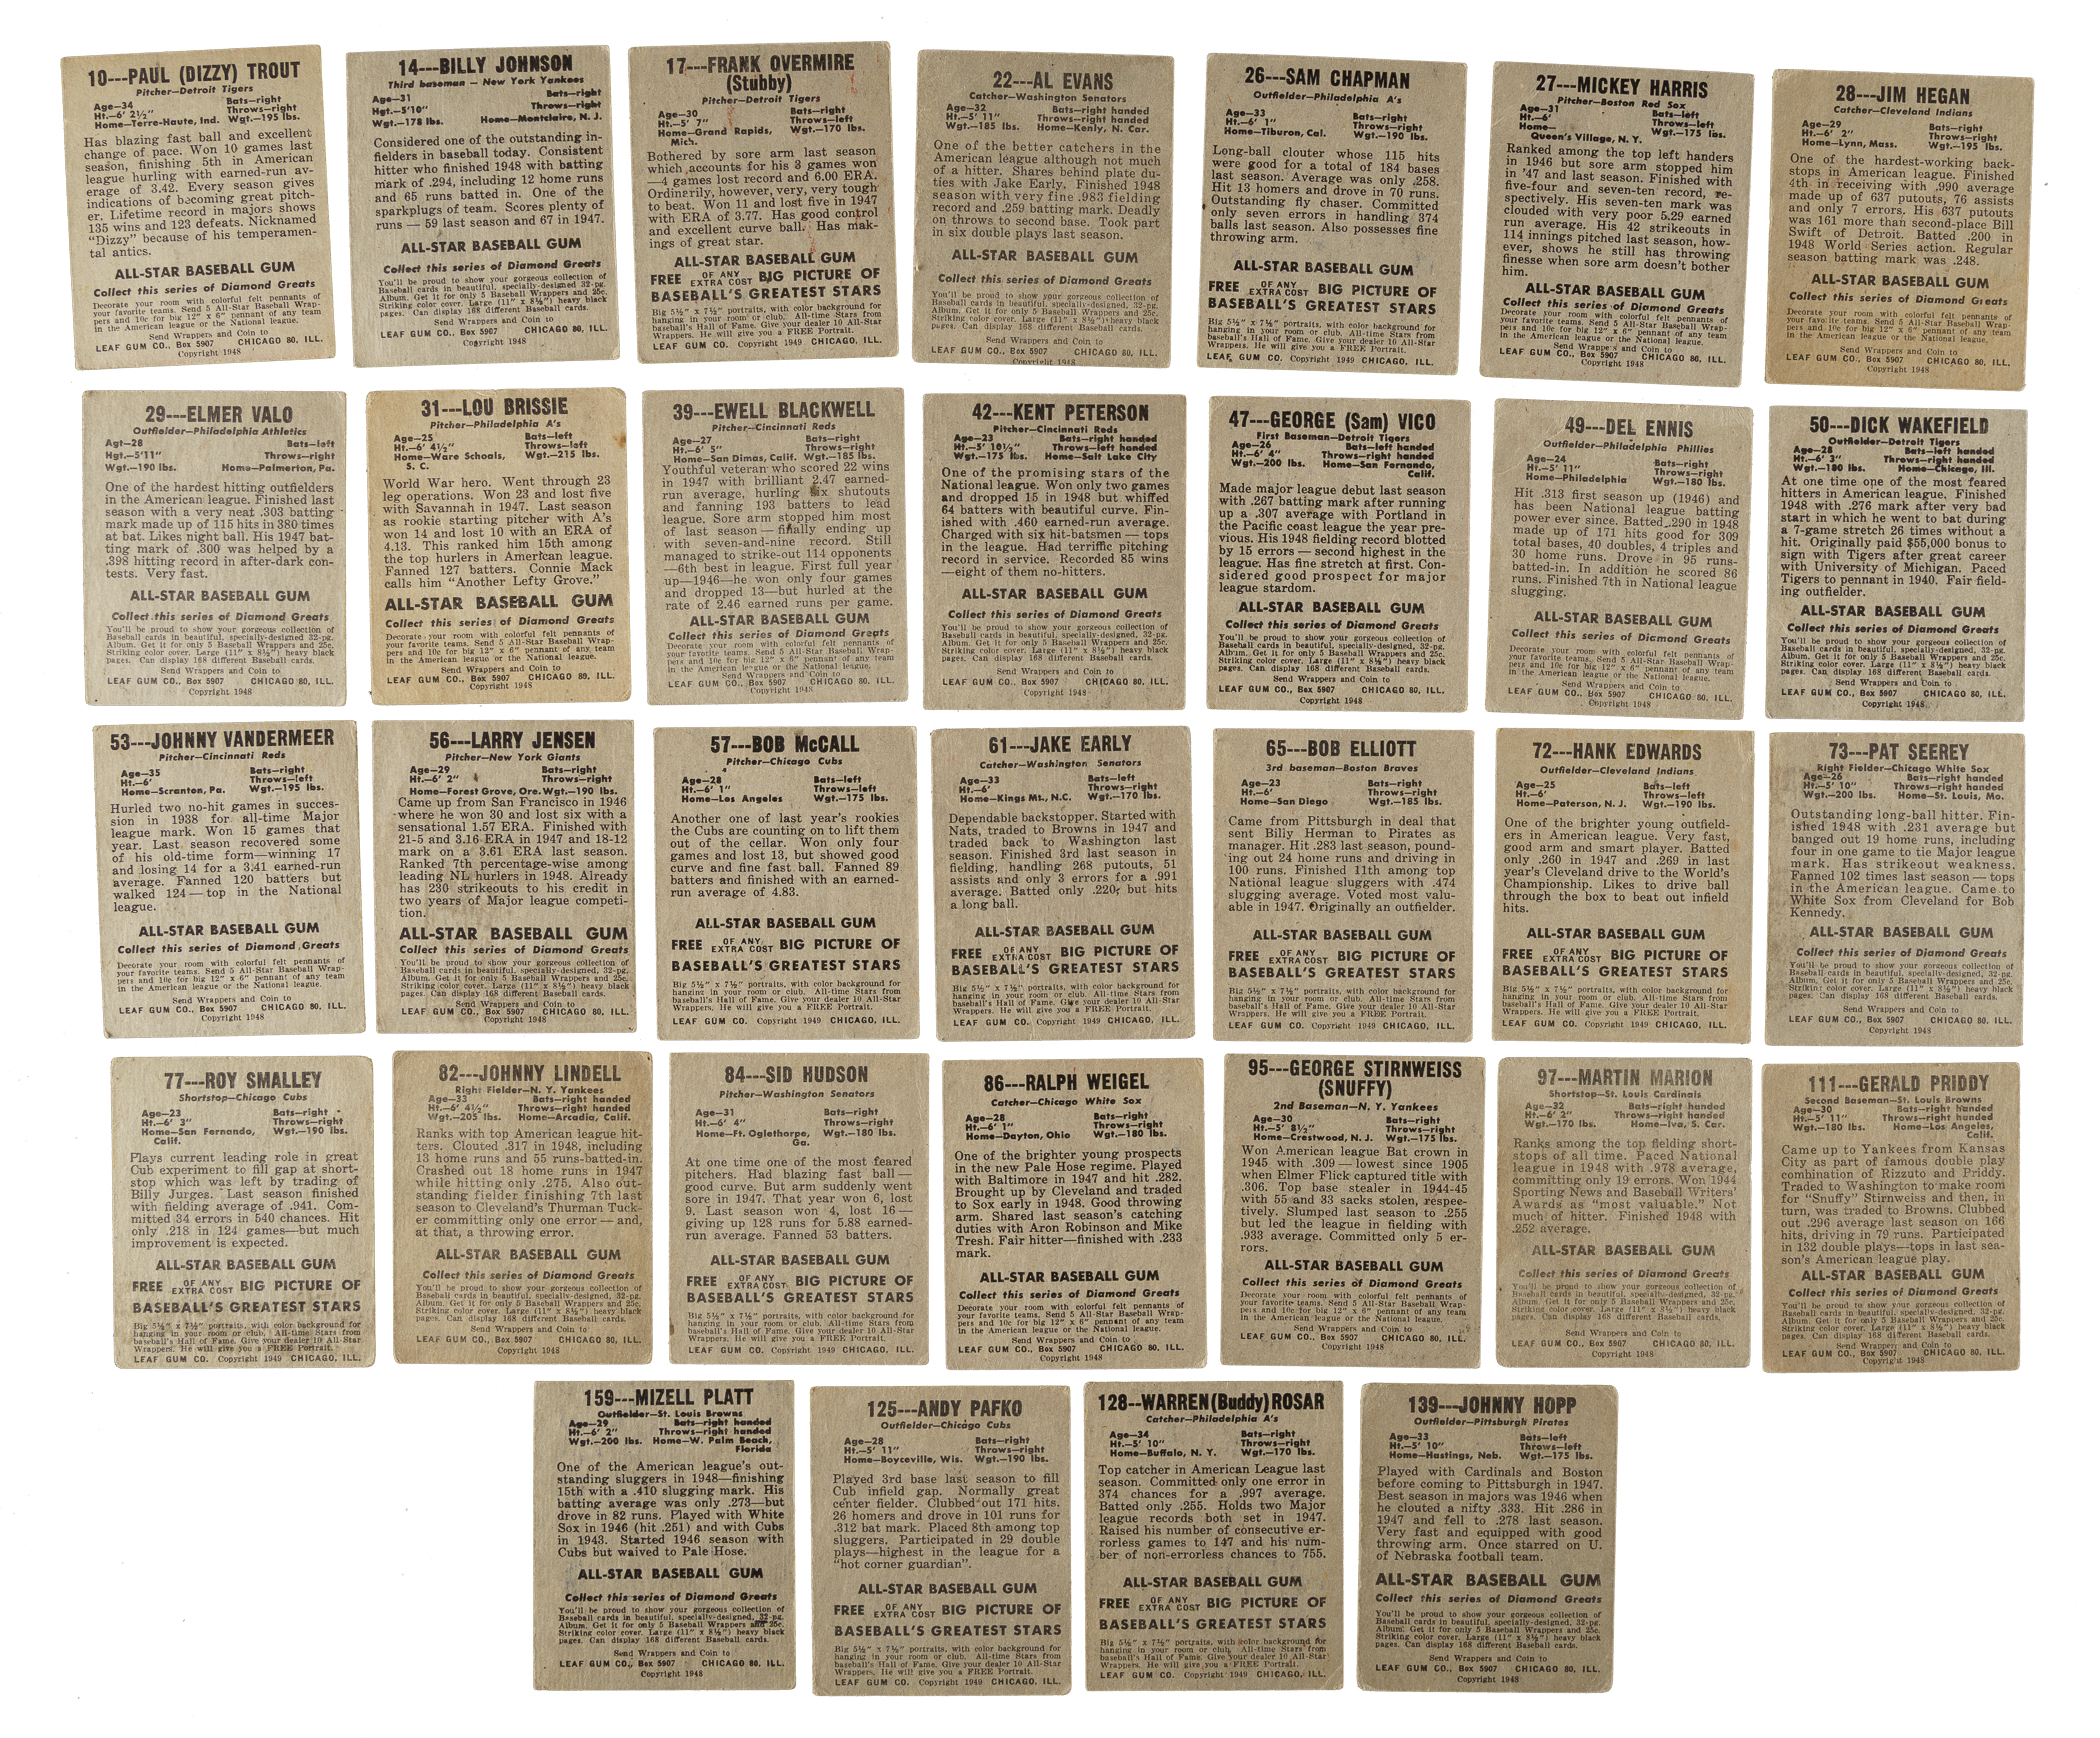 10---PAUL (DIZZY) TROUT
Pitcher—Detroit Tigers
Age—34 Bats—right
Ht.—6' 2½" Throws—right
Home—Terre-Haute, Ind. Wgt.—195 lbs.
Has blazing fast ball and excellent
change of pace. Won 10 games last
season, finishing 5th in American
league hurling with earned-run av-
erage of 3.42. Every season gives
indications of becoming great pitch-
er. Lifetime record in majors shows
135 wins and 123 defeats. Nicknamed
"Dizzy" because of his temperamen-
tal antics.
ALL-STAR BASEBALL GUM
Collect this series of Diamond Greats
Decorate your room with colorful felt pennants of
your favorite teams. Send 5 All-Star Baseball Wrap-
pers and 10c for big 12" x 6" pennant of any team
in the American league or the National league.
Send Wrappers and Coin to
LEAF GUM CO., Box 5907 CHICAGO 80, ILL.
Copyright 1948
14---BILLY JOHNSON
Third baseman — New York Yankees
Age—31 Bats—right
Hgt.—5'10" Throws—right
Wgt.—178 lbs. Home—Montclaire, N. J.
Considered one of the outstanding in-
fielders in baseball today. Consistent
hitter who finished 1948 with batting
mark of .294, including 12 home runs
and 65 runs batted in. One of the
sparkplugs of team. Scores plenty of
runs — 59 last season and 67 in 1947.
ALL-STAR BASEBALL GUM
Collect this series of Diamond Greats
You'll be proud to show your gorgeous collection of
Baseball cards in beautiful, specially-designed, 32-pg.
Album. Get it for only 5 Baseball Wrappers and 25c.
Striking color cover. Large (11" x 8½") heavy black
pages. Can display 168 different Baseball cards.
Send Wrappers and Coin to
LEAF GUM CO., Box 5907 CHICAGO 80, ILL.
Copyright 1948
17---FRANK OVERMIRE
(Stubby)
Pitcher—Detroit Tigers
Age—30 Bats—right
Ht.—5' 7" Throws—left
Home—Grand Rapids, Wgt.—170 lbs.
Mich.
Bothered by sore arm last season
which accounts for his 3 games won
—4 games lost record and 6.00 ERA.
Ordinerily, however, very, very tough
to beat. Won 11 and lost five in 1947
with ERA of 3.77. Has good control
and excellent curve ball. Has mak-
ings of great star.
ALL-STAR BASEBALL GUM
FREE OF ANY EXTRA COST BIG PICTURE OF
BASEBALL'S GREATEST STARS
Big 5½" x 7½" portraits, with color background for
hanging in your room or club. All-time Stars from
baseball's Hall of Fame. Give your dealer 10 All-Star
Wrappers. He will give you a FREE Portrait.
LEAF GUM CO. Copyright 1949 CHICAGO, ILL.
22---AL EVANS
Catcher—Washington Senators
Age—32 Bats—right handed
Ht.—5' 11" Throws—right handed
Wgt.—185 lbs. Home—Kenly, N. Car.
One of the better catchers in the
American league although not much
of a hitter. Shares behind plate du-
ties with Jake Early. Finished 1948
season with very fine .983 fielding
record and .259 batting mark. Deadly
on throws to second base. Took part
in six double plays last season.
ALL-STAR BASEBALL GUM
Collect this series of Diamond Greats
You'll be proud to show your gorgeous collection of
Baseball cards in beautiful, specially-designed, 32-pg.
Album. Get it for only 5 Baseball Wrappers and 25c.
Striking color cover. Large (11" x 8½") heavy black
pages. Can display 168 different Baseball cards.
Send Wrappers and Coin to
LEAF GUM CO., Box 5907 CHICAGO 80, ILL.
Copyright 1948
26---SAM CHAPMAN
Outfielder—Philadelphia A's
Age—33 Bats—right
Ht.—6' 1" Throws—right
Home—Tiburon, Cal. Wgt.—190 lbs.
Long-ball clouter whose 115 hits
were good for a total of 184 bases
last season. Average was only .258.
Hit 13 homers and drove in 70 runs.
Outstanding fly chaser. Committed
only seven errors in handling 374
balls last season. Also possesses fine
throwing arm.
ALL-STAR BASEBALL GUM
FREE OF ANY EXTRA COST BIG PICTURE OF
BASEBALL'S GREATEST STARS
Big 5½" x 7½" portraits, with color background for
hanging in your room or club. All-time Stars from
baseball's Hall of Fame. Give your dealer 10 All-Star
Wrappers. He will give you a FREE Portrait.
LEAF GUM CO. Copyright 1949 CHICAGO, ILL.
27---MICKEY HARRIS
Pitcher—Boston Red Sox
Age—31 Bats—left
Ht.—6' Throws—left
Home— Wgt.—175 lbs.
Queen's Village, N. Y.
Ranked among the top left handers
in 1946 but sore arm stopped him
in '47 and last season. Finished with
five-four and seven-ten record, re-
spectively. His seven-ten mark was
clouded with very poor 5.29 earned
run average. His 42 strikeouts in
114 innings pitched last season, how-
ever, shows he still has throwing
finesse when sore arm doesn't bother
him.
ALL-STAR BASEBALL GUM
Collect this series of Diamond Greats
Decorate your room with colorful felt pennants of
your favorite teams. Send 5 All-Star Baseball Wrap-
pers and 10c for big 12" x 6" pennant of any team
in the American league or the National league.
Send Wrappers and Coin to
LEAF GUM CO., Box 5907 CHICAGO 80, ILL.
Copyright 1948
28---JIM HEGAN
Catcher—Cleveland Indians
Age—29 Bats—right
Ht.—6' 2" Throws—right
Home—Lynn, Mass. Wgt.—195 lbs.
One of the hardest-working back-
stops in American league. Finished
4th in receiving with .990 average
made up of 637 putouts, 76 assists
and only 7 errors. His 637 putouts
was 161 more than second-place Bill
Swift of Detroit. Batted .200 in
1948 World Series action. Regular
season batting mark was .248.
ALL-STAR BASEBALL GUM
Collect this series of Diamond Greats
Decorate your room with colorful felt pennants of
your favorite teams. Send 5 All-Star Baseball Wrap-
pers and 10c for big 12" x 6" pennant of any team
in the American league or the National league.
Send Wrappers and Coin to
LEAF GUM CO., Box 5907 CHICAGO 80, ILL.
Copyright 1948
29---ELMER VALO
Outfielder—Philadelphia Athletics
Agt—28 Bats—left
Hgt.—5'11" Throws—right
Wgt.—190 lbs. Home—Palmerton, Pa.
One of the hardest hitting outfielders
in the American league. Finished last
season with a very neat .303 batting
mark made up of 115 hits in 380 times
at bat. Likes night ball. His 1947 bat-
ting mark of .300 was helped by a
.398 hitting record in after-dark con-
tests. Very fast.
ALL-STAR BASEBALL GUM
Collect this series of Diamond Greats
You'll be proud to show your gorgeous collection of
Baseball cards in beautiful, specially-designed, 32-pg.
Album. Get it for only 5 Baseball Wrappers and 25c.
Striking color cover. Large (11" x 8½") heavy black
pages. Can display 168 different Baseball cards.
Send Wrappers and Coin to
LEAF GUM CO., Box 5907 CHICAGO 80, ILL.
Copyright 1948
31---LOU BRISSIE
Pitcher—Philadelphia A's
Age—25 Bats—left
Ht.—6' 4½" Throws—left
Home—Ware Schoals, Wgt.—215 lbs.
S. C.
World War hero. Went through 23
leg operations. Won 23 and lost five
with Savannah in 1947. Last season
as rookie starting pitcher with A's
won 14 and lost 10 with an ERA of
4.13. This ranked him 15th among
the top hurlers in American league.
Fanned 127 batters. Connie Mack
calls him "Another Lefty Grove."
ALL-STAR BASEBALL GUM
Collect this series of Diamond Greats
Decorate your room with colorful felt pennants of
your favorite teams. Send 5 All-Star Baseball Wrap-
pers and 10c for big 12" x 6" pennant of any team
in the American league or the National league.
Send Wrappers and Coin to
LEAF GUM CO., Box 5907 CHICAGO 80, ILL.
Copyright 1948
39---EWELL BLACKWELL
Pitcher—Cincinnati Reds
Age—27 Bats—right
Ht.—6' 5" Throws—right
Home—San Dimas, Calif. Wgt.—185 lbs.
Youthful veteran who scored 22 wins
in 1947 with brilliant 2.47 earned-
run average, hurling six shutouts
and fanning 193 batters to lead
league. Sore arm stopped him most
of last season—finally ending up
with seven-and-nine record. Still
managed to strike-out 114 opponents
—6th best in league. First full year
up—1946—he won only four games
and dropped 13—but hurled at the
rate of 2.46 earned runs per game.
ALL-STAR BASEBALL GUM
Collect this series of Diamond Greats
Decorate your room with colorful felt pennants of
your favorite teams. Send 5 All-Star Baseball Wrap-
pers and 10c for big 12" x 6" pennant of any team
in the American league or National league.
Send Wrappers and Coin to
LEAF GUM CO., Box 5907 CHICAGO 80, ILL.
Copyright 1948
42---KENT PETERSON
Pitcher—Cincinnati Reds
Age—23 Bats—right handed
Ht.—5' 10½" Throws—left handed
Wgt.—175 lbs. Home—Salt Lake City
One of the promising stars of the
National league. Won only two games
and dropped 15 in 1948 but whiffed
64 batters with beautiful curve. Fin-
ished with .460 earned-run average.
Charged with six hit-batsmen — tops
in the league. Had terriffic pitching
record in service. Recorded 85 wins
—eight of them no-hitters.
ALL-STAR BASEBALL GUM
Collect this series of Diamond Greats
You'll be proud to show your gorgeous collection of
Baseball cards in beautiful, specially-designed, 32-pg.
Album. Get it for only 5 Baseball Wrappers and 25c.
Striking color cover. Large (11" x 8½") heavy black
pages. Can display 168 different Baseball cards.
Send Wrappers and Coin to
LEAF GUM CO., Box 5907 CHICAGO 80, ILL.
Copyright 1948
47---GEORGE (Sam) VICO
First Baseman—Detroit Tigers
Age—26 Bats—left handed
Ht.—6' 4" Throws—right handed
Wgt.—200 lbs. Home—San Fernando,
Calif.
Made major league debut last season
with .267 batting mark after running
up a .307 average with Portland in
the Pacific coast league the year pre-
vious. His 1948 fielding record blotted
by 15 errors — second highest in the
league. Has fine stretch at first. Con-
sidered good prospect for major
league stardom.
ALL-STAR BASEBALL GUM
Collect this series of Diamond Greats
You'll be proud to show your gorgeous collection of
Baseball cards in beautiful, specially-designed, 32-pg.
Album. Get it for only 5 Baseball Wrappers and 25c.
Striking color cover. Large (11" x 8½") heavy black
pages. Can display 168 different Baseball cards.
Send Wrappers and Coin to
LEAF GUM CO., Box 5907 CHICAGO 80, ILL.
Copyright 1948
49---DEL ENNIS
Outfielder—Philadelphia Phillies
Age—24 Bats—right
Ht.—5' 11" Throws—right
Home—Philadelphia Wgt.—180 lbs.
Hit .313 first season up (1946) and
has been National league batting
power ever since. Batted .290 in 1948
made up of 171 hits good for 309
total bases, 40 doubles, 4 triples and
30 home runs. Drove in 95 runs-
batted-in. In addition he scored 86
runs. Finished 7th in National league
slugging.
ALL-STAR BASEBALL GUM
Collect this series of Diamond Greats
Decorate your room with colorful felt pennants of
your favorite teams. Send 5 All-Star Baseball Wrap-
pers and 10c for big 12" x 6" pennant of any team
in the American league or the National league.
Send Wrappers and Coin to
LEAF GUM CO., Box 5907 CHICAGO 80, ILL.
Copyright 1948
50---DICK WAKEFIELD
Outfielder—Detroit Tigers
Age—28 Bats—left handed
Ht.—6' 3" Throws—right handed
Wgt.—180 lbs. Home—Chicago, Ill.
At one time one of the most feared
hitters in American league. Finished
1948 with .276 mark after very bad
start in which he went to bat during
a 7-game stretch 26 times without a
hit. Originally paid $55,000 bonus to
sign with Tigers after great career
with University of Michigan. Paced
Tigers to pennant in 1940. Fair field-
ing outfielder.
ALL-STAR BASEBALL GUM
Collect this series of Diamond Greats
You'll be proud to show your gorgeous collection of
Baseball cards in beautiful, specially-designed, 32-pg.
Album. Get it for only 5 Baseball Wrappers and 25c.
Striking color cover. Large (11" x 8½") heavy black
pages. Can display 168 different Baseball cards.
Send Wrappers and Coin to
LEAF GUM CO., Box 5907 CHICAGO 80, ILL.
Copyright 1948
53---JOHNNY VANDERMEER
Pitcher—Cincinnati Reds
Age—35 Bats—right
Ht.—6' Throws—left
Home—Scranton, Pa. Wgt.—195 lbs.
Hurled two no-hit games in succes-
sion in 1938 for all-time Major
league mark. Won 15 games that
year. Last season recovered some
of his old-time form—winning 17
and losing 14 for a 3.41 earned-run
average. Fanned 120 batters but
walked 124—top in the National
league.
ALL-STAR BASEBALL GUM
Collect this series of Diamond Greats
Decorate your room with colorful felt pennants of
your favorite teams. Send 5 All-Star Baseball Wrap-
pers and 10c for big 12" x 6" pennant of any team
in the American league or the National league.
Send Wrappers and Coin to
LEAF GUM CO., Box 5907 CHICAGO 80, ILL.
Copyright 1948
56---LARRY JENSEN
Pitcher—New York Giants
Age—29 Bats—right
Ht.—6' 2" Throws—right
Home—Forest Grove, Ore. Wgt.—190 lbs.
Came up from San Francisco in 1946
where he won 30 and lost six with a
sensational 1.57 ERA. Finished with
21-5 and 3.16 ERA in 1947 and 18-12
mark on a 3.61 ERA last season.
Ranked 7th percentage-wise among
leading NL hurlers in 1948. Already
has 230 strikeouts to his credit in
two years of Major league competi-
tion.
ALL-STAR BASEBALL GUM
Collect this series of Diamond Greats
You'll be proud to show your gorgeous collection of
Baseball cards in beautiful, specially-designed, 32-pg.
Album. Get it for only 5 Baseball Wrappers and 25c.
Striking color cover. Large (11" x 8½") heavy black
pages. Can display 168 different Baseball cards.
Send Wrappers and Coin to
LEAF GUM CO., Box 5907 CHICAGO 80, ILL.
Copyright 1948
57---BOB McCALL
Pitcher—Chicago Cubs
Age—28 Bats—left
Ht.—6' 1" Throws—left
Home—Los Angeles Wgt.—175 lbs.
Another one of last year's rookies
the Cubs are counting on to lift them
out of the cellar. Won only four
games and lost 13, but showed good
curve and fine fast ball. Fanned 89
batters and finished with an earned-
run average of 4.83.
ALL-STAR BASEBALL GUM
FREE OF ANY EXTRA COST BIG PICTURE OF
BASEBALL'S GREATEST STARS
Big 5½" x 7½" portraits, with color background for
hanging in your room or club. All-time Stars from
baseball's Hall of Fame. Give your dealer 10 All-Star
Wrappers. He will give you a FREE Portrait.
LEAF GUM CO. Copyright 1949 CHICAGO, ILL.
61---JAKE EARLY
Catcher—Washington Senators
Age—33 Bats—left
Ht.—6' Throws—right
Home—Kings Mt., N.C. Wgt.—170 lbs.
Dependable backstopper. Started with
Nats, traded to Browns in 1947 and
traded back to Washington last
season. Finished 3rd last season in
fielding, handling 268 putouts, 51
assists and only 3 errors for a .991
average. Batted only .220 but hits
a long ball.
ALL-STAR BASEBALL GUM
FREE OF ANY EXTRA COST BIG PICTURE OF
BASEBALL'S GREATEST STARS
Big 5½" x 7½" portraits, with color background for
hanging in your room or club. All-time Stars from
baseball's Hall of Fame. Give your dealer 10 All-Star
Wrappers. He will give you a FREE Portrait.
LEAF GUM CO. Copyright 1949 CHICAGO, ILL.
65---BOB ELLIOTT
3rd baseman—Boston Braves
Age—23 Bats—right
Ht.—6' Throws—right
Home—San Diego Wgt.—185 lbs.
Came from Pittsburgh in deal that
sent Billy Herman to Pirates as
manager. Hit .283 last season, pound-
ing out 24 home runs and driving in
100 runs. Finished 11th among top
National league sluggers with .474
slugging average. Voted most valu-
able in 1947. Originally an outfielder.
ALL-STAR BASEBALL GUM
FREE OF ANY EXTRA COST BIG PICTURE OF
BASEBALL'S GREATEST STARS
Big 5½" x 7½" portraits, with color background for
hanging in your room or club. All-time Stars from
baseball's Hall of Fame. Give your dealer 10 All-Star
Wrappers. He will give you a FREE Portrait.
LEAF GUM CO. Copyright 1949 CHICAGO, ILL.
72---HANK EDWARDS
Outfielder—Cleveland Indians
Age—25 Bats—left
Ht.—6' Throws—left
Home—Paterson, N. J. Wgt.—190 lbs.
One of the brighter young outfield-
ers in American league. Very fast,
good arm and smart player. Batted
only .260 in 1947 and .269 in last
year's Cleveland drive to the World's
Championship. Likes to drive ball
through the box to beat out infield
hits.
ALL-STAR BASEBALL GUM
FREE OF ANY EXTRA COST BIG PICTURE OF
BASEBALL'S GREATEST STARS
Big 5½" x 7½" portraits, with color background for
hanging in your room or club. All-time Stars from
baseball's Hall of Fame. Give your dealer 10 All-Star
Wrappers. He will give you a FREE Portrait.
LEAF GUM CO. Copyright 1949 CHICAGO, ILL.
73---PAT SEEREY
Right Fielder—Chicago White Sox
Age—26 Bats—right handed
Ht.—5' 10" Throws—right handed
Wgt.—200 lbs. Home—St. Louis, Mo.
Outstanding long-ball hitter. Fin-
ished 1948 with .231 average but
banged out 19 home runs, including
four in one game to tie Major league
mark. Has strikeout weakness.
Fanned 102 times last season — tops
in the American league. Came to
White Sox from Cleveland for Bob
Kennedy.
ALL-STAR BASEBALL GUM
Collect this series of Diamond Greats
You'll be proud to show your gorgeous collection of
Baseball cards in beautiful, specially-designed, 32-pg.
Album. Get it for only 5 Baseball Wrappers and 25c.
Striking color cover. Large (11" x 8½") heavy black
pages. Can display 168 different Baseball cards.
Send Wrappers and Coin to
LEAF GUM CO., Box 5907 CHICAGO 80, ILL.
Copyright 1948
77---ROY SMALLEY
Shortstop—Chicago Cubs
Age—23 Bats—right
Ht.—6' 3" Throws—right
Home—San Fernando, Wgt.—190 lbs.
Calif.
Plays current leading role in great
Cub experiment to fill gap at short-
stop which was left by trading of
Billy Jurges. Last season finished
with fielding average of .941. Com-
mitted 34 errors in 540 chances. Hit
only .218 in 124 games—but much
improvement is expected.
ALL-STAR BASEBALL GUM
FREE OF ANY EXTRA COST BIG PICTURE OF
BASEBALL'S GREATEST STARS
Big 5½" x 7½" portraits, with color background for
hanging in your room or club. All-time Stars from
baseball's Hall of Fame. Give your dealer 10 All-Star
Wrappers. He will give you a FREE Portrait.
LEAF GUM CO. Copyright 1949 CHICAGO, ILL.
82---JOHNNY LINDELL
Right Fielder—N. Y. Yankees
Age—33 Bats—right handed
Ht.—6' 4½" Throws—right handed
Wgt.—205 lbs. Home—Arcadia, Calif.
Ranks with top American league hit-
ters. Clouted .317 in 1948, including
13 home runs and 55 runs-batted-in.
Crashed out 18 home runs in 1947
while hitting only .275. Also out-
standing fielder finishing 7th last
season to Cleveland's Thurman Tuck-
er committing only one error — and,
at that, a throwing error.
ALL-STAR BASEBALL GUM
Collect this series of Diamond Greats
You'll be proud to show your gorgeous collection of
Baseball cards in beautiful, specially-designed, 32-pg.
Album. Get it for only 5 Baseball Wrappers and 25c.
Striking color cover. Large (11" x 8½") heavy black
pages. Can display 168 different Baseball cards.
Send Wrappers and Coin to
LEAF GUM CO., Box 5907 CHICAGO 80, ILL.
Copyright 1948
84---SID HUDSON
Pitcher—Washington Senators
Age—31 Bats—right
Ht.—6' 4" Throws—right
Home—Ft. Oglethorpe, Wgt.—180 lbs.
Ga.
At one time one of the most feared
pitchers. Had blazing fast ball —
good curve. But arm suddenly went
sore in 1947. That year won 6, lost
9. Last season won 4, lost 16 —
giving up 128 runs for 5.88 earned-
run average. Fanned 53 batters.
ALL-STAR BASEBALL GUM
FREE OF ANY EXTRA COST BIG PICTURE OF
BASEBALL'S GREATEST STARS
Big 5½" x 7½" portraits, with color background for
hanging in your room or club. All-time Stars from
baseball's Hall of Fame. Give your dealer 10 All-Star
Wrappers. He will give you a FREE Portrait.
LEAF GUM CO. Copyright 1949 CHICAGO, ILL.
86---RALPH WEIGEL
Catcher—Chicago White Sox
Age—28 Bats—right
Ht.—6' 1" Throws—right
Home—Dayton, Ohio Wgt.—180 lbs.
One of the brighter young prospects
in the new Pale Hose regime. Played
with Baltimore in 1947 and hit .282.
Brought up by Cleveland and traded
to Sox early in 1948. Good throwing
arm. Shared last season's catching
duties with Aron Robinson and Mike
Tresh. Fair hitter—finished with .233
mark.
ALL-STAR BASEBALL GUM
Collect this series of Diamond Greats
Decorate your room with colorful felt pennants of
your favorite teams. Send 5 All-Star Baseball Wrap-
pers and 10c for big 12" x 6" pennant of any team
in the American league or the National league.
Send Wrappers and Coin to
LEAF GUM CO., Box 5907 CHICAGO 80, ILL.
Copyright 1948
95---GEORGE STIRNWEISS
(SNUFFY)
2nd Baseman—N. Y. Yankees
Age—30 Bats—right
Ht.—5' 8½" Throws—right
Home—Crestwood, N. J. Wgt.—175 lbs.
Won American league Bat crown in
1945 with .309 — lowest since 1905
when Elmer Flick captured title with
.306. Top base stealer in 1944-45
with 55 and 33 sacks stolen, respec-
tively. Slumped last season to .255
but led the league in fielding with
.933 average. Committed only 5 er-
rors.
ALL-STAR BASEBALL GUM
Collect this series of Diamond Greats
Decorate your room with colorful felt pennants of
your favorite teams. Send 5 All-Star Baseball Wrap-
pers and 10c for big 12" x 6" pennant of any team
in the American league or the National league.
Send Wrappers and Coin to
LEAF GUM CO., Box 5907 CHICAGO 80, ILL.
Copyright 1948
97---MARTIN MARION
Shortstop—St. Louis Cardinals
Age—32 Bats—right handed
Ht.—6' 2" Throws—right handed
Wgt.—170 lbs. Home—Iva, S. Car.
Ranks among the top fielding short-
stops of all time. Paced National
league in 1948 with .978 average,
committing only 19 errors. Won 1944
Sporting News and Baseball Writers'
Awards as "most valuable." Not
much of hitter. Finished 1948 with
.252 average.
ALL-STAR BASEBALL GUM
Collect this series of Diamond Greats
You'll be proud to show your gorgeous collection of
Baseball cards in beautiful, specially-designed, 32-pg.
Album. Get it for only 5 Baseball Wrappers and 25c.
Striking color cover. Large (11" x 8½") heavy black
pages. Can display 168 different Baseball cards.
Send Wrappers and Coin to
LEAF GUM CO., Box 5907 CHICAGO 80, ILL.
Copyright 1948
111---GERALD PRIDDY
Second Baseman—St. Louis Browns
Age—30 Bats—right handed
Ht.—5' 11" Throws—right handed
Wgt.—180 lbs. Home—Los Angeles,
Calif.
Came up to Yankees from Kansas
City as part of famous double play
combination of Rizzuto and Priddy.
Traded to Washington to make room
for "Snuffy" Stirnweiss and then, in
turn, was traded to Browns. Clubbed
out .296 average last season on 166
hits, driving in 79 runs. Participated
in 132 double plays—tops in last sea-
son's American league play.
ALL-STAR BASEBALL GUM
Collect this series of Diamond Greats
You'll be proud to show your gorgeous collection of
Baseball cards in beautiful, specially-designed, 32-pg.
Album. Get it for only 5 Baseball Wrappers and 25c.
Striking color cover. Large (11" x 8½") heavy black
pages. Can display 168 different Baseball cards.
Send Wrappers and Coin to
LEAF GUM CO., Box 5907 CHICAGO 80, ILL.
Copyright 1948
159---MIZELL PLATT
Outfielder—St. Louis Browns
Age—29 Bats—right handed
Ht.—6' 2" Throws—right handed
Wgt.—200 lbs. Home—W. Palm Beach,
Florida
One of the American league's out-
standing sluggers in 1948—finishing
15th with a .410 slugging mark. His
batting average was only .273—but
drove in 82 runs. Played with White
Sox in 1946 (hit .251) and with Cubs
in 1943. Started 1946 season with
Cubs but waived to Pale Hose.
ALL-STAR BASEBALL GUM
Collect this series of Diamond Greats
You'll be proud to show your gorgeous collection of
Baseball cards in beautiful, specially-designed, 32-pg.
Album. Get it for only 5 Baseball Wrappers and 25c.
Striking color cover. Large (11" x 8½") heavy black
pages. Can display 168 different Baseball cards.
Send Wrappers and Coin to
LEAF GUM CO., Box 5907 CHICAGO 80, ILL.
Copyright 1948
125---ANDY PAFKO
Outfielder—Chicago Cubs
Age—28 Bats—right
Ht.—5' 11" Throws—right
Home—Boyceville, Wis. Wgt.—190 lbs.
Played 3rd base last season to fill
Cub infield gap. Normally great
center fielder. Clubbed out 171 hits.
26 homers and drove in 101 runs for
.312 bat mark. Placed 8th among top
sluggers. Participated in 29 double
plays—highest in the league for a
"hot corner guardian".
ALL-STAR BASEBALL GUM
FREE OF ANY EXTRA COST BIG PICTURE OF
BASEBALL'S GREATEST STARS
Big 5½" x 7½" portraits, with color background for
hanging in your room or club. All-time Stars from
baseball's Hall of Fame. Give your dealer 10 All-Star
Wrappers. He will give you a FREE Portrait.
LEAF GUM CO. Copyright 1949 CHICAGO, ILL.
128--WARREN (Buddy) ROSAR
Catcher—Philadelphia A's
Age—34 Bats—right
Ht.—5' 10" Throws—right
Home—Buffalo, N. Y. Wgt.—170 lbs.
Top catcher in American League last
season. Committed only one error in
374 chances for a .997 average.
Batted only .255. Holds two Major
league records both set in 1947.
Raised his number of consecutive er-
rorless games to 147 and his num-
ber of non-errorless chances to 755.
ALL-STAR BASEBALL GUM
FREE OF ANY EXTRA COST BIG PICTURE OF
BASEBALL'S GREATEST STARS
Big 5½" x 7½" portraits, with color background for
hanging in your room or club. All-time Stars from
baseball's Hall of Fame. Give your dealer 10 All-Star
Wrappers. He will give you a FREE Portrait.
LEAF GUM CO. Copyright 1949 CHICAGO, ILL.
139---JOHNNY HOPP
Outfielder—Pittsburgh Pirates
Age—33 Bats—left
Ht.—5' 10" Throws—left
Home—Hastings, Neb. Wgt.—175 lbs.
Played with Cardinals and Boston
before coming to Pittsburgh in 1947.
Best season in majors was 1946 when
he clouted a nifty .333. Hit .286 in
1947 and fell to .278 last season.
Very fast and equipped with good
throwing arm. Once starred on U.
of Nebraska football team.
ALL-STAR BASEBALL GUM
Collect this series of Diamond Greats
You'll be proud to show your gorgeous collection of
Baseball cards in beautiful, specially-designed, 32-pg.
Album. Get it for only 5 Baseball Wrappers and 25c.
Striking color cover. Large (11" x 8½") heavy black
pages. Can display 168 different Baseball cards.
Send Wrappers and Coin to
LEAF GUM CO., Box 5907 CHICAGO 80, ILL.
Copyright 1948